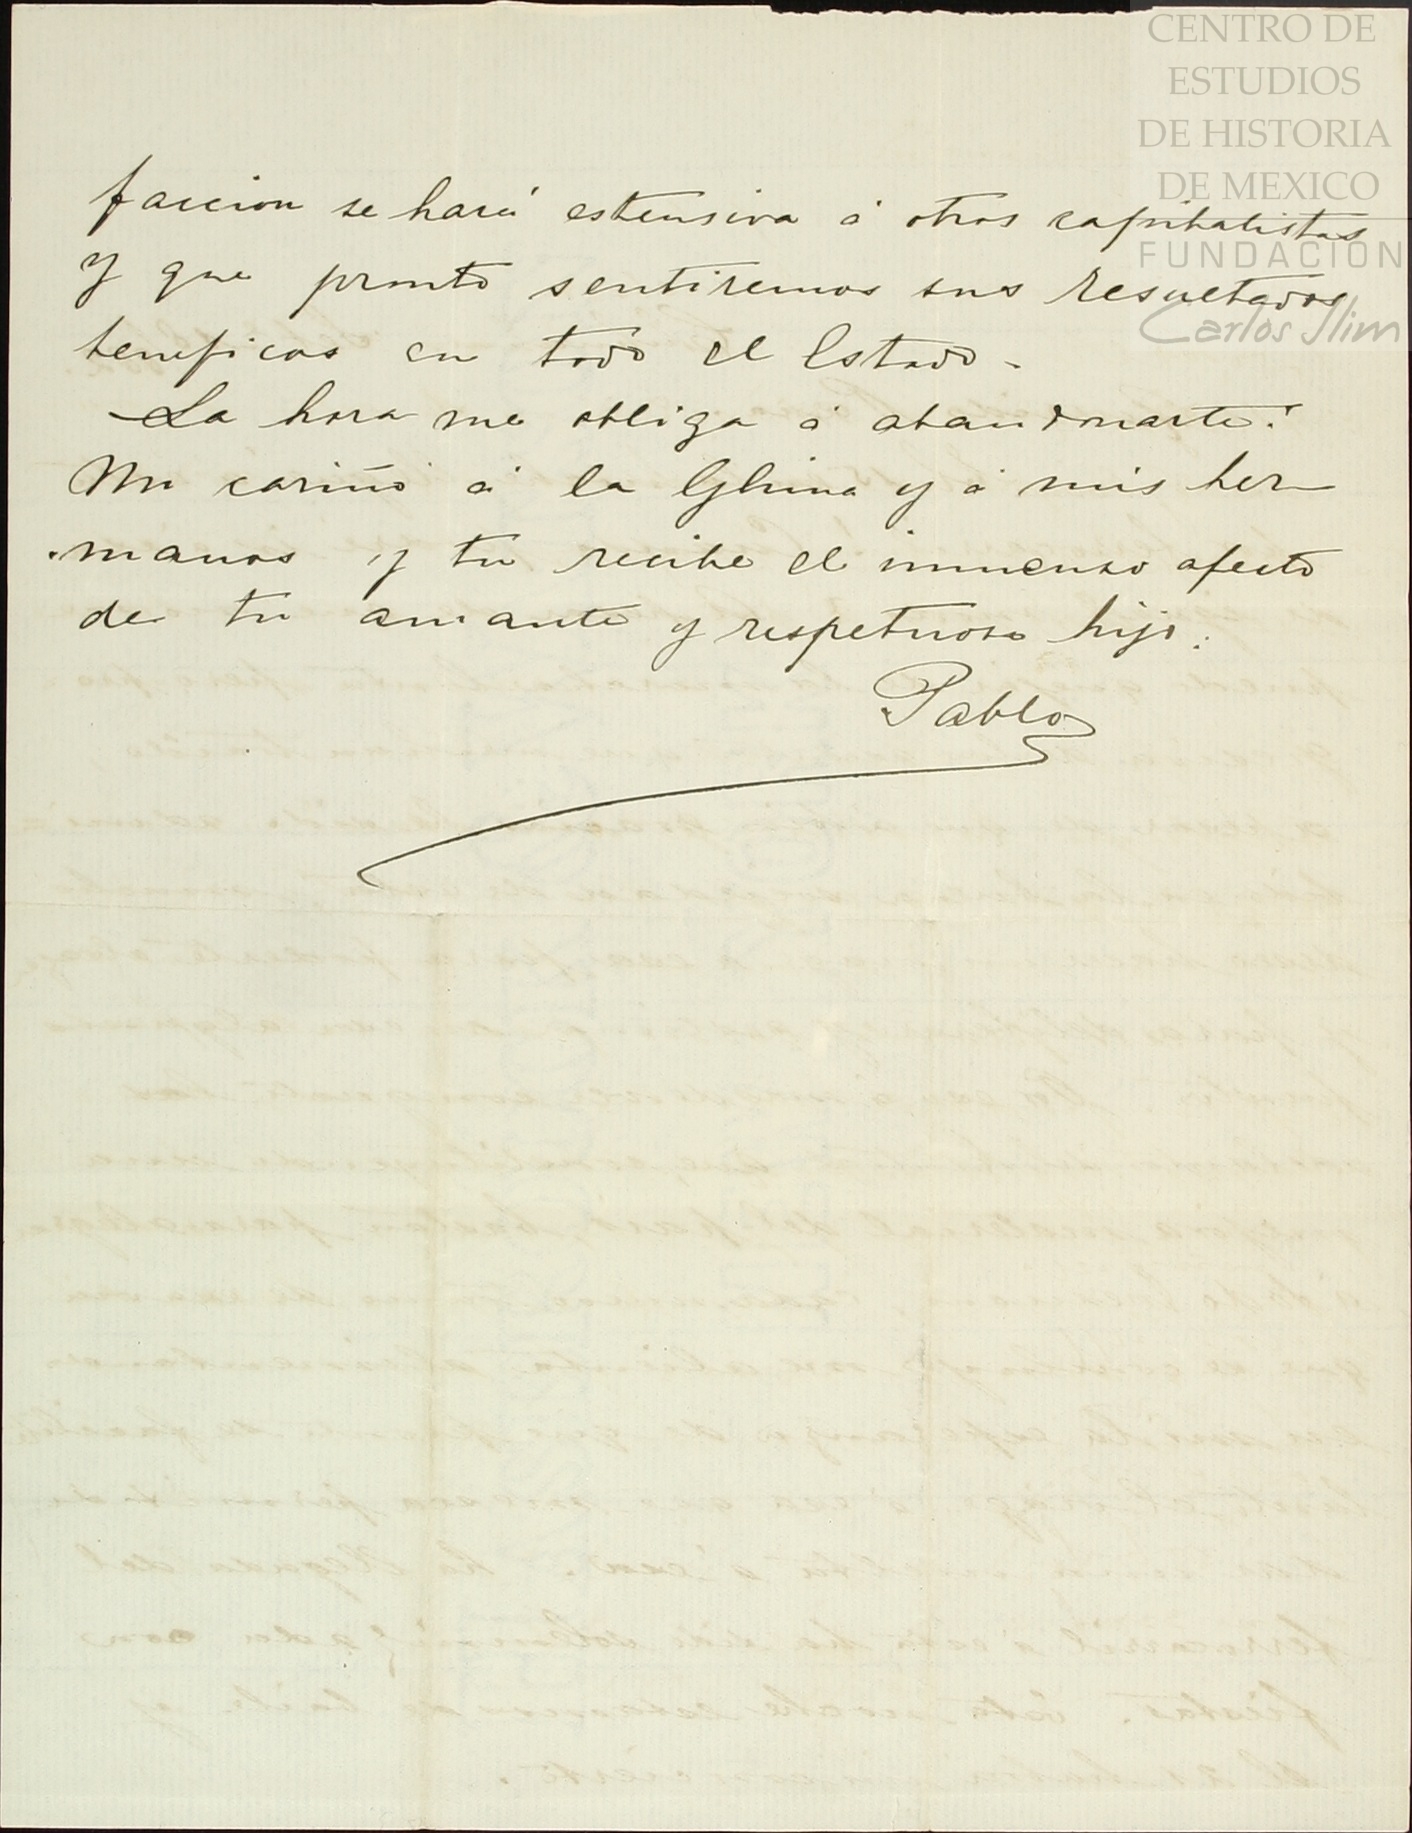 CENTRO DE
ESTUDIOS
DE HISTORIA
DE MEXICO
FUNDACIÓN
Carlos Slim
faccion se hará estensiva á otros capitalistas
y que pronto sentiremos sus resultados
beneficos en todo el Estado.
La hora me obliga á abandonarte.
Mi cariño á la y á mis her
manos y tu recibe el inmenso afecto
de tu amante y respetuoso hijo.
Pablo